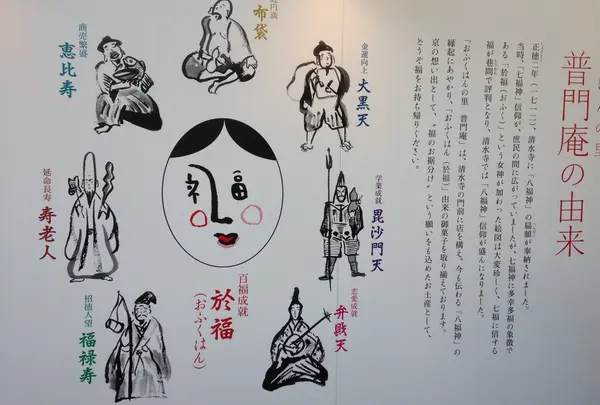 普門庵の由来
正徳二年(一七一二)、清水寺に「八福神」の扁額が奉納されました。
当時、「七福神」信仰が、庶民の間に広がっていましたが、七福神に多幸多福の象徴で
ある「於福(おふく)」という女神が加わった絵図は大変珍しく、七福に倍する
福が巷間で評判となり、清水寺では「八福神」信仰が盛んになりました。
「おふくはんの里 普門庵」は、清水寺の門前に店を構え、今も伝わる「八福神」の
縁起にあやかり、「おふくはん(於福)」由来の御菓子を取り揃えております。
京の想い出として、〝福のお裾分け〟という願いをも込めたお土産として、
どうぞ福をお持ち帰りください。
金運向上
大黒天
布袋
商売繁盛
恵比寿
学業成就
毘沙門天
延命長寿
寿老人
百福成就
於福
(おふくはん)
恋愛成就
弁財天
招徳人望
福禄寿